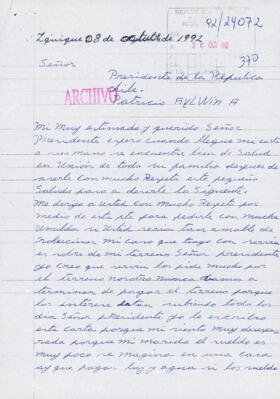 REPUBLICA
92/24072
Iquique 08 de octubre de 1992
20 OCT 92
Señor
370
Presidente de la Republica
Chile.
ARCHIVO
Patricio AYLWIN A
Mi Muy estimado y querido Señor
Presidente espero cuando llegue mi carta
a sus manos se encuentre bien de Salud
en Unión de toda su familia despues de
aserle con Mucho Respeto este pequeño
Saludo paso a desirle lo Siguiente.
Me dirijo a usted con Mucho Respeto por
medio de esta pta para pedirle con mucha
Umilda si Usted seria tan amable de
mi caso que tengo con serviu
es sobre de mi terreno Señor presidente
yo creo que serviu los pide mucho por
el terreno nosotros nunca
terminar de pagar el terreno porque
los interese están subiendo todo los
dia Señor Presidente yo le escribo
esta carta porque mi siento Muy desespe
rada porque mi marido el sueldo es
muy poco se magina en una casa
ay que pagar luz y agua si los sueldo